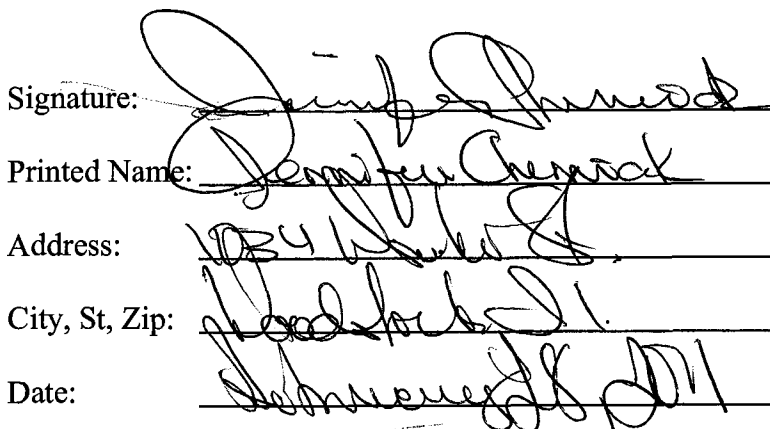 Signature: Jennifer
Printed Name: Jennifer
Address: 1034 St.
City, St, Zip: Woodstock Il.
Date: February 28, 2011